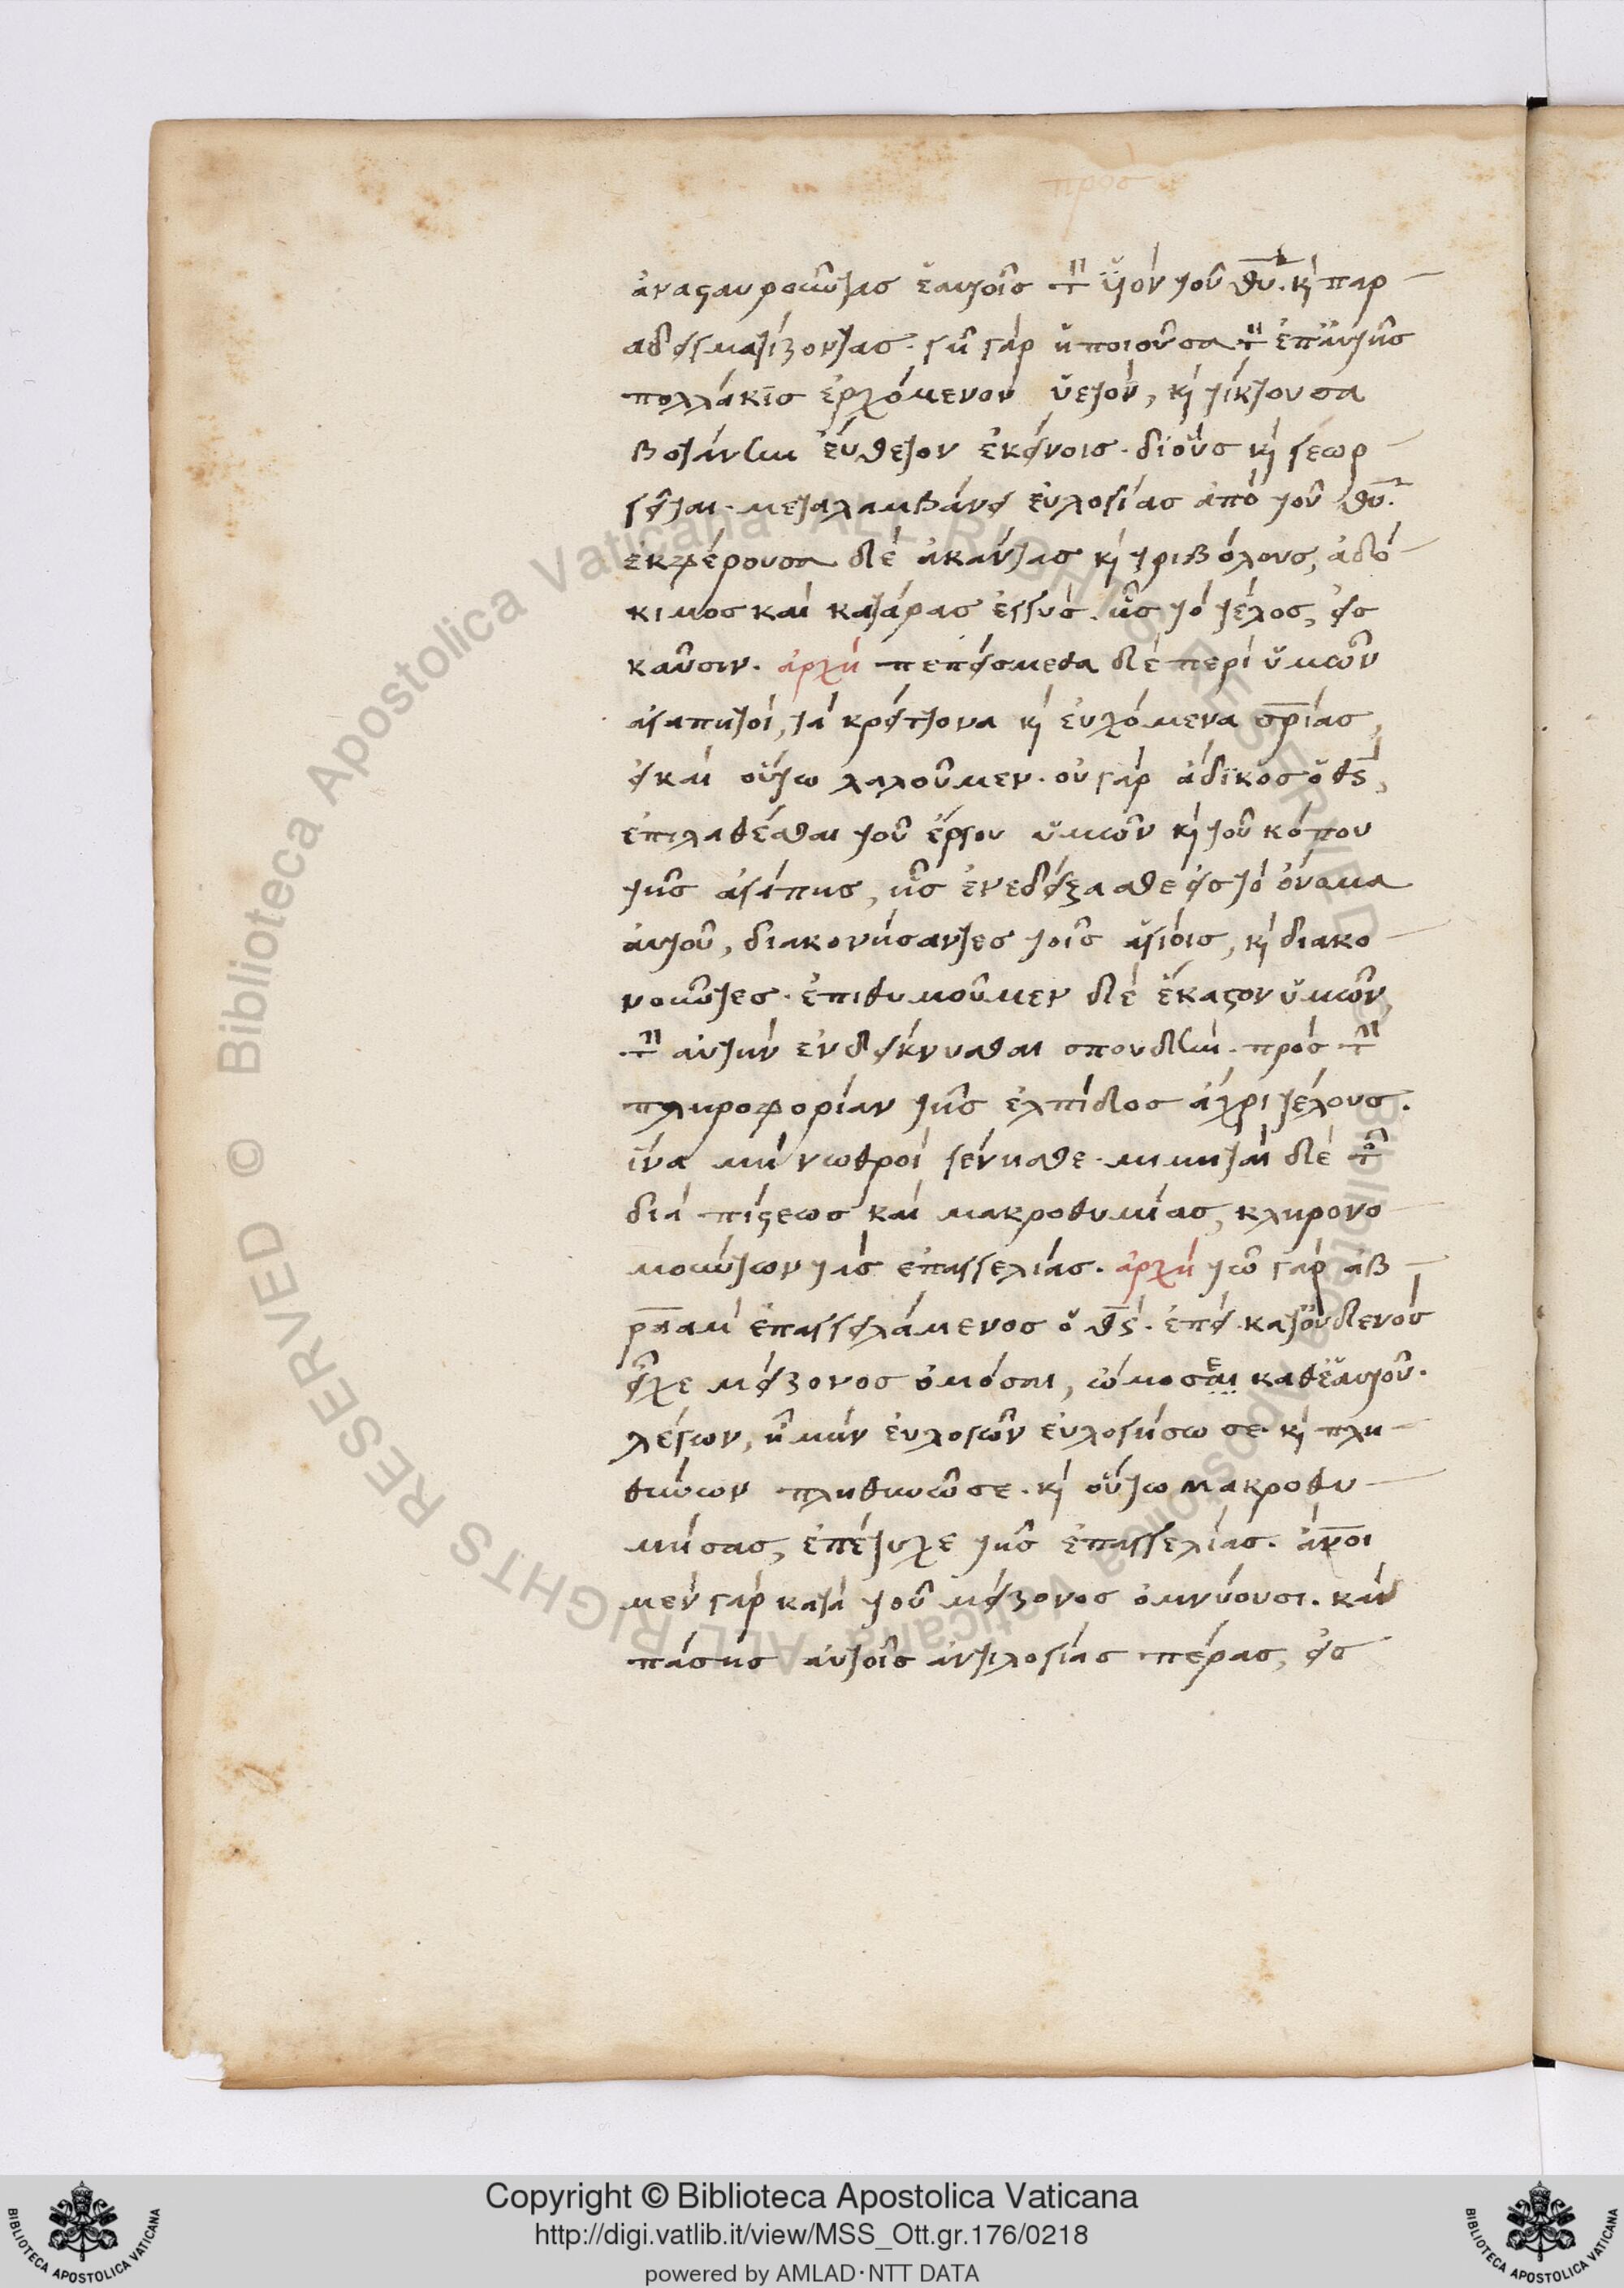 προσ
ἀναςαυροῦντας ἑαυτοῖς τὸν ὑϊὸν τοῦ θυ̅. κὶ παρ
αδειγματίζοντας. γῆ γὰρ ἡ ποιοῦσα τὸν ἐπ' ἀυτῆς
πολλάκϊς ἐρχόμενον ὑετὸν, κὶ τίκτουσα
βοτάνην ἐύθετον ἐκείνοις. δι' οὓς κὶ γεωρ
γεῖται. μεταλαμβάνει ἐυλογίας ἀπὸ τοῦ θυ̅.
ἐκφέρουσα δὲ ἀκάντας κὶ τριβόλους, ἀδό
κιμος καὶ κατάρας ἐγγύς. ἧς τὸ τέλος, εἰς
καῦσιν. ἀρχὴ πεπείσμεθα δὲ περὶ ὑμῶν
ἀγαπητοὶ, τὰ κρείττονα κὶ ἐυχόμενα σρ̅ίας,
εἰ καὶ οὕτω λαλοῦμεν. οὐ γὰρ ἄδϊκος ὁ θς̅,
ἐπιλαθέσθαι τοῦ ἔργου ὑμῶν κὶ τοῦ κόπου
τῆς ἀγάπης, ἧς ἐνεδείξασθε εἰς τὸ ὄνομα
ἀυτοῦ, διακονήσαντες τοῖς ἁγίοις, κὶ διακο
νοῦντες. ἐπιθυμοῦμεν δὲ ἕκαςον ὑμῶν,
τὴν ἀυτὴν ἐνδείκνυσθαι σπουδὴν. πρὸς τὴν
πληροφορίαν τῆς ἐλπίδος ἄχρι τέλους.
ἵνα μὴ νωθροὶ γένησθε. μιμηταὶ δὲ τῶν
διὰ πίςεως καὶ μακροθυμίας, κληρονο
μούντων τὰς ἐπαγγελίας. ἀρχὴ τῶ γὰρ ἀβ
ρααμ ἐπαγγειλάμενος ὁ θς̅. ἐπεὶ κατ' οὐδενὸς
εἶχε μείζονος ὀμόσαι, ὤμοσεαι καθ' ἑαυτοῦ.
λέγων, ἦ μὴν ἐυλογῶν ἐυλογήσω σε. κὶ πλη
θύνων πληθυνῶ σε. κὶ οὕτω μακροθυ
μήσας, ἐπέτυχε τῆς ἐπαγγελίας. ἄν̅οι
μὲν γὰρ κατὰ τοῦ μείζονος ὀμνύουσι. καὶ
πάσης ἀυτοῖς ἀντιλογίας πέρας, εἰς
Copyright © Biblioteca Apostolica Vaticana
http://digi.vatlib.it/view/MSS_Ott.gr.176/0218
powered by AMLAD·NTT DATA
BIBLIOTECA APOSTOLICA VATICANA
BIBLIOTECA APOSTOLICA VATICANA
© Biblioteca Apostolica Vaticana ALL RIGHTS RESERVED
© Biblioteca Apostolica Vaticana ALL RIGHTS RESERVED